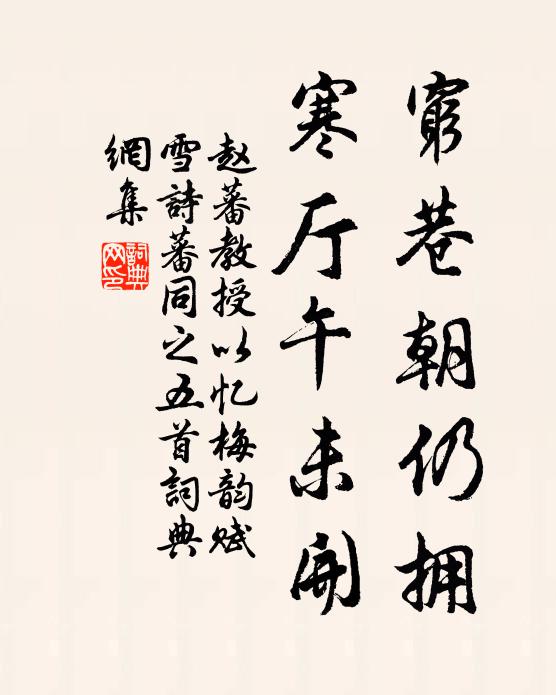 窮巷朝仍拥
寒厅午未開
赵蕃教授以忆梅韵赋
雪詩蕃同之五首詞典
網集
詞典
网印